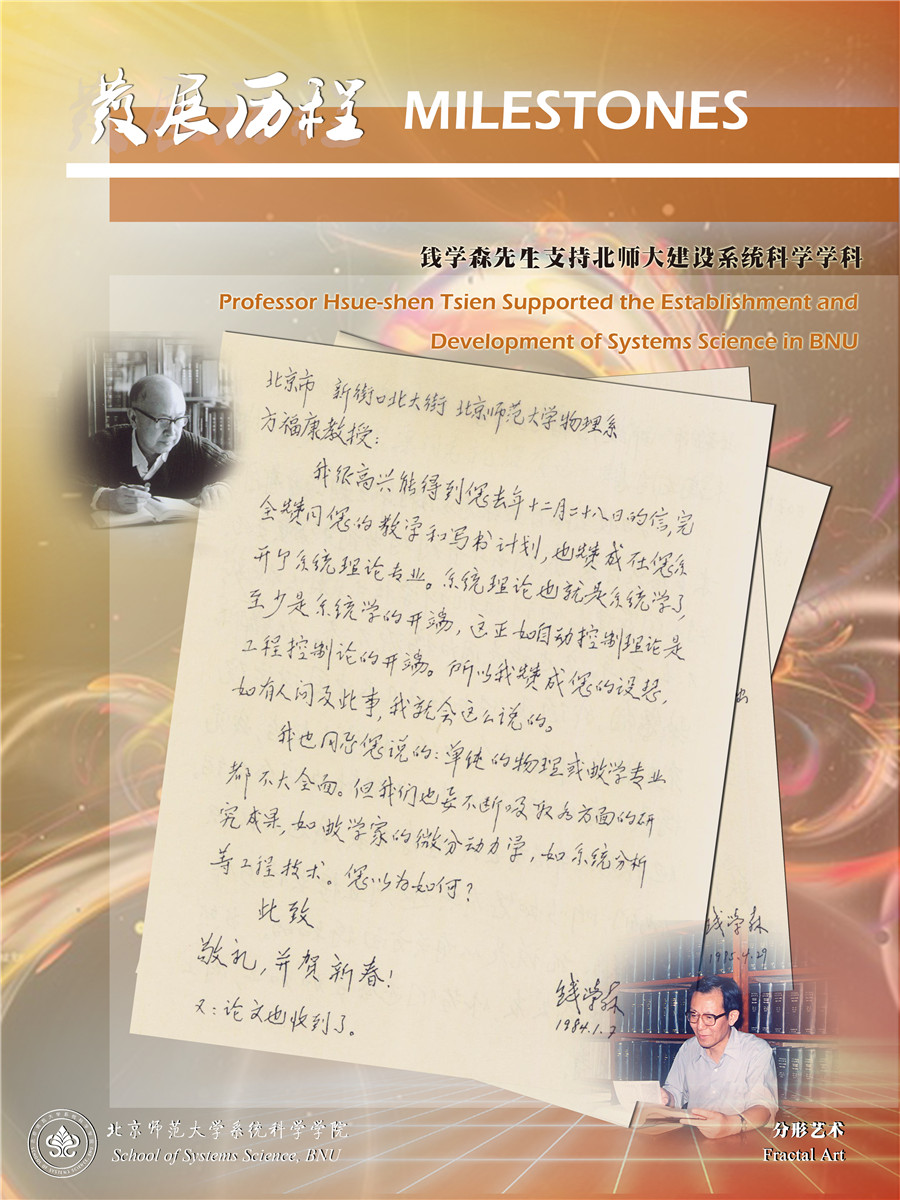 發展历程 MILESTONES
钱学森先生支持北师大建设系统科学学科
Professor Hsue-shen Tsien Supported the Establishment and
Development of Systems Science in BNU
北京市 新街口北大街 北京师范大学物理系
方福康教授:
我很高兴能得到您去年十二月二十八日的信,完
全赞同您的教学和写书计划,也赞成在您系
开个系统理论专业。系统理论也就是系统学了,
至少是系统学的开端,这正如自动控制理论是
工程控制论的开端。所以我赞成您的设想,
如有人问及此事,我就会这么说的。
我也同意您说的:单纯的物理或数学专业
都不大全面。但我们也要不断吸取各方面的研
究成果,如数学家的微分动力学,如系统分析
等工程技术。您以为如何?
此致
敬礼,并贺新春!
钱学森
1984.1.7
又:论文也收到了。
钱学森
1985.4.29
北京师范大学系统科学学院
School of Systems Science, BNU
分形艺术
Fractal Art